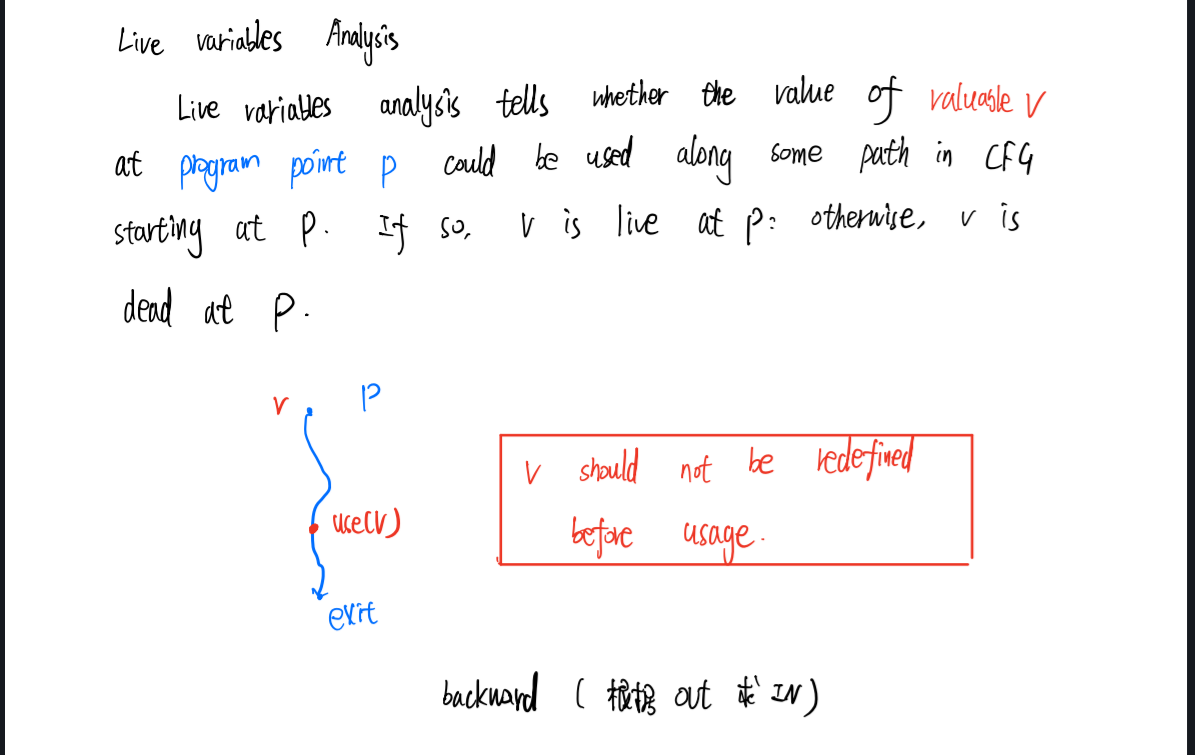 Live variables Analysis
Live variables analysis tells whether the value of valuable v
at program point p could be used along some path in CFG
starting at p. If so, v is live at p: otherwise, v is
dead at p.
v p
use(v)
exit
v should not be redefined
before usage.
backward (根据 out 求 IN)